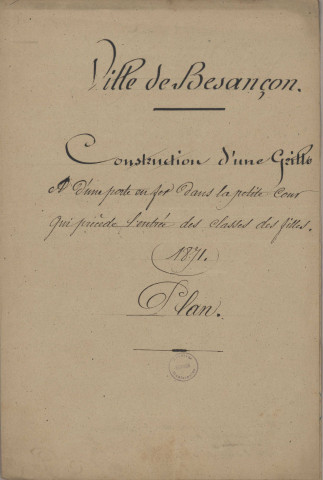 Ville de Besançon.
Construction d'une Grille
et d'une porte en fer dans la petite cour
qui précède l'entrée des classes des filles.
1871.
Plan.